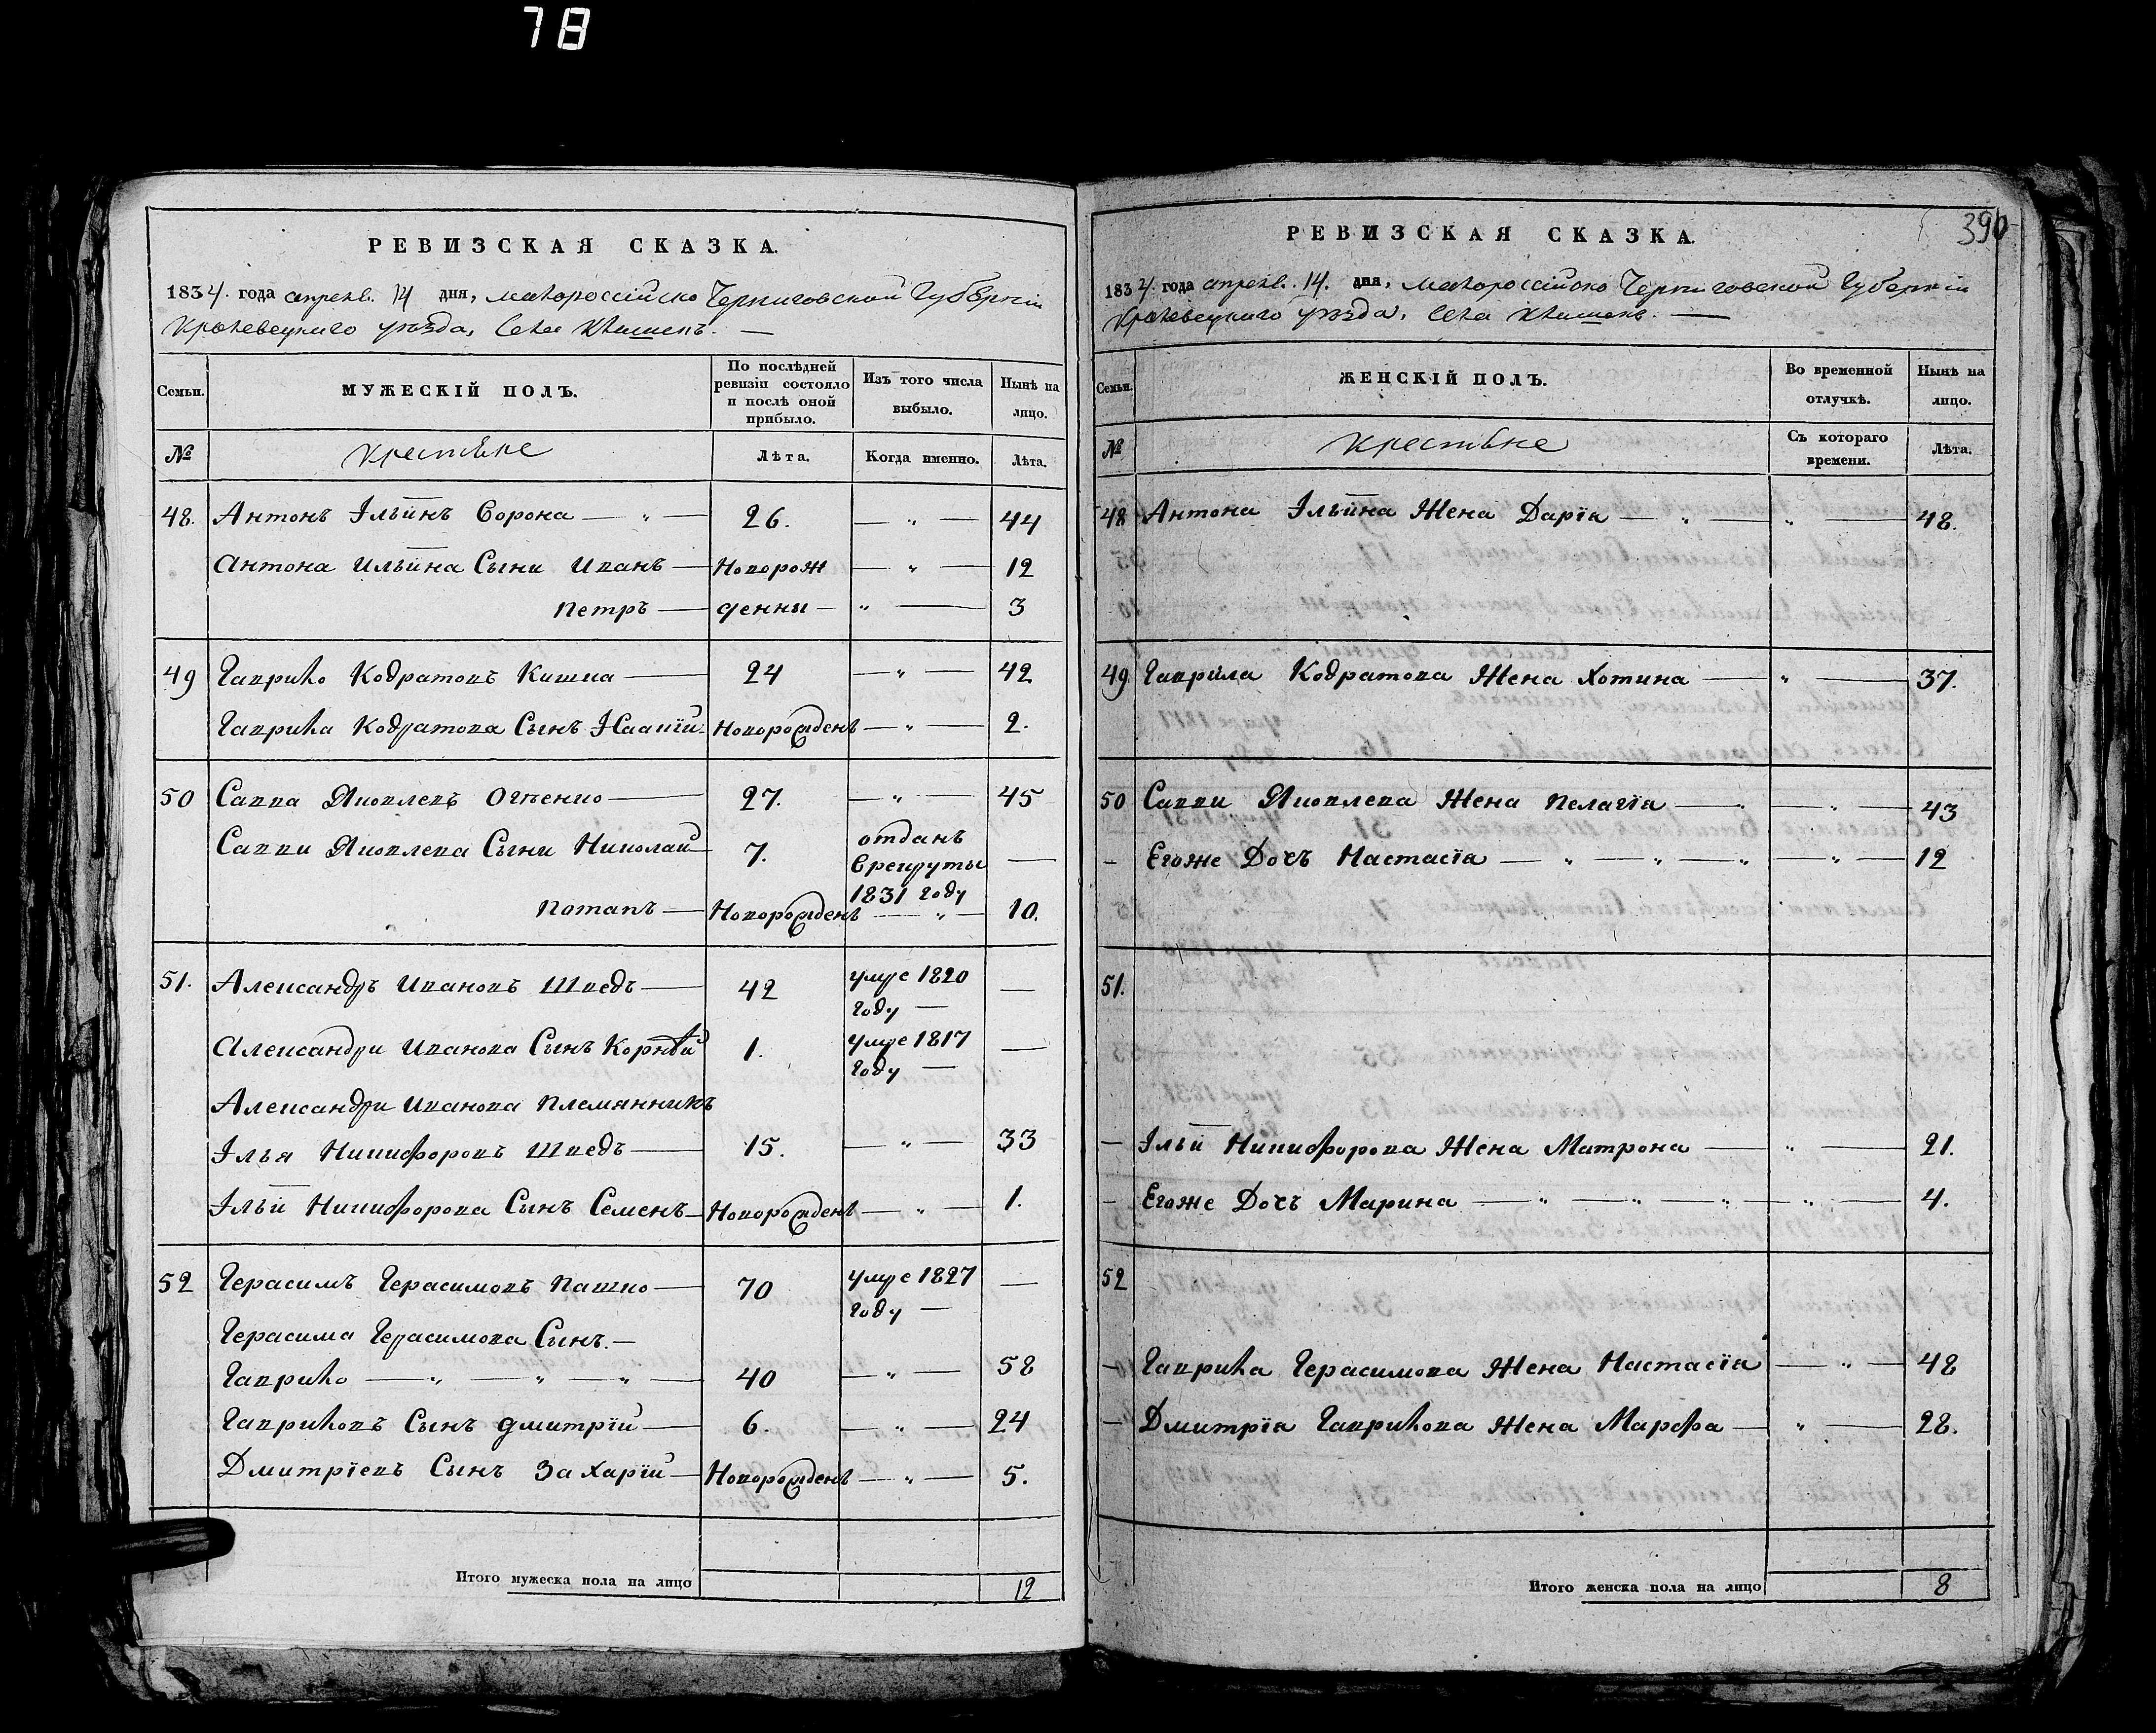 78
РЕВИЗСКАЯ СКАЗКА.
1834. года апреля. 14 дня, малороссійско Черниговской Губерніи
Кролевецкаго уѣзда, Села Клишекъ. —
Семьи. МУЖЕСКІЙ ПОЛЪ. По послѣдней ревизіи состояло и послѣ оной прибыло. Изъ того числа выбыло. Нынѣ на лицо.
№ Крестьяне Лѣта. Когда именно. Лѣта.
48. Антонъ Ільинъ Сорока — „ — 26. — „ — 44
Антона Ильина Сыни Иванъ — Новорож — „ — 12
Петръ — денны — „ — 3
49 Гаврило Кодратовъ Кишка — 24 — „ — 42
Гаврила Кодратова Сынъ Новорожденъ — „ — 2.
50 Савва Яковлевъ — 27. — „ — 45
Савви Яковлева Сыни Николай — 7. отданъ в рекруты 1831 году —
Потапъ — Новорожденъ — „ — 10.
51. Александръ Ивановъ Шведъ — 42 умре 1820 году — —
Александри Иванова Сынъ Корнѣй 1. умре 1817 году — —
Александри Иванова племянникъ
Ілья Никифоровъ Шведъ — 15. — „ — 33
Ільи Никифорова Сынъ Семенъ — Новорожденъ — „ — 1.
52 Герасимъ Герасимовъ Пашко — 70 умре 1827 году — —
Герасима Герасимова Сынъ. —
Гаврило — „ — „ — „ — 40 — „ — 58
Гавриловъ Сынъ Дмитрій — 6. — „ — 24
Дмитріевъ Сынъ Захарій — Новорожденъ — „ — 5.
Итого мужеска пола на лицо 12
390
РЕВИЗСКАЯ СКАЗКА.
1834. года апреля. 14. дня, малороссійско Черниговской Губерніи
Кролевецкаго уѣзда, Села Клишекъ. —
Семьи. ЖЕНСКІЙ ПОЛЪ. Во временной отлучкѣ. Нынѣ на лицо.
№ Крестьяне Съ котораго времени. Лѣта.
48 Антона Ільина Жена Дарія — „ — „ — 48.
49. Гаврила Кодратова Жена Хотина — „ — 37.
50 Савви Яковлева Жена Пелагія — „ — „ — 43
– Егоже Дочъ Настасія — „ — „ — „ — „ — 12
51.
– Ільи Никифорова Жена Матрона — „ — 21.
– Егоже Дочъ Марина — „ — „ — „ — „ — 4.
52
– Гаврила Герасимова Жена Настасія — „ — 48
– Дмитрія Гаврилова Жена Марфа — „ — 28.
Итого женска пола на лицо 8